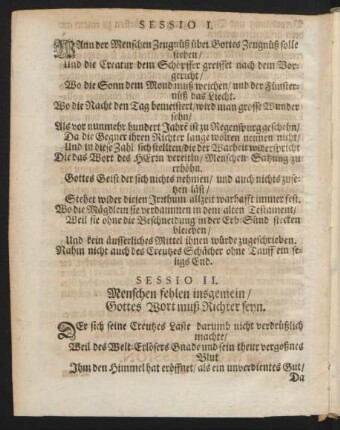 SESSIO I.
WAnn der Menschen Zeugnüß über Gottes Zeugnüß solle
stehen/
Und die Creatur dem Schöpffer greiffet nach dem Vor-
gericht/
Wo die Sonn dem Mond muß weichen/ und der Finster-
nüß das Liecht.
Wo die Nacht den Tag bemeistert/ wird man grosse Wunder
sehn/
Als vor nunmehr hundert Jahr ist zu Regenspurg geschehn/
Da die Gegner ihren Richter lange wolten nennen nicht/
Und in diese Zahl sich stellten/ die der Warheit widerspricht
Die das Wort des HErrn vereitln/ Menschen Satzung zu
erhöhn.
Gottes Geist der sich nichts nehmen/ und auch nichts zuse-
tzen läst/
Stehet wider diesen Irrthum allzeit warhafft immer fest.
Wo die Mägdlein sie verdammen in dem alten Testament/
Weil sie ohne die Beschneidung in der Erb-Sünd stecken
blieben/
Und kein äusserliches Mittel ihnen würde zugeschrieben.
Nahm nicht auch des Creutzes Schächer ohne Tauff ein se-
ligs End.
SESSIO II.
Menschen fehlen insgemein/
Gottes Wort muß Richter seyn.
DEr sich seine Creutzes Laste darumb nicht verdrüßlich
machte/
Weil des Welt-Erlösers Gnade und sein theur vergoßnes
Blut
Ihm den Himmel hat eröffnet/ als ein unverdientes Gut/
Da